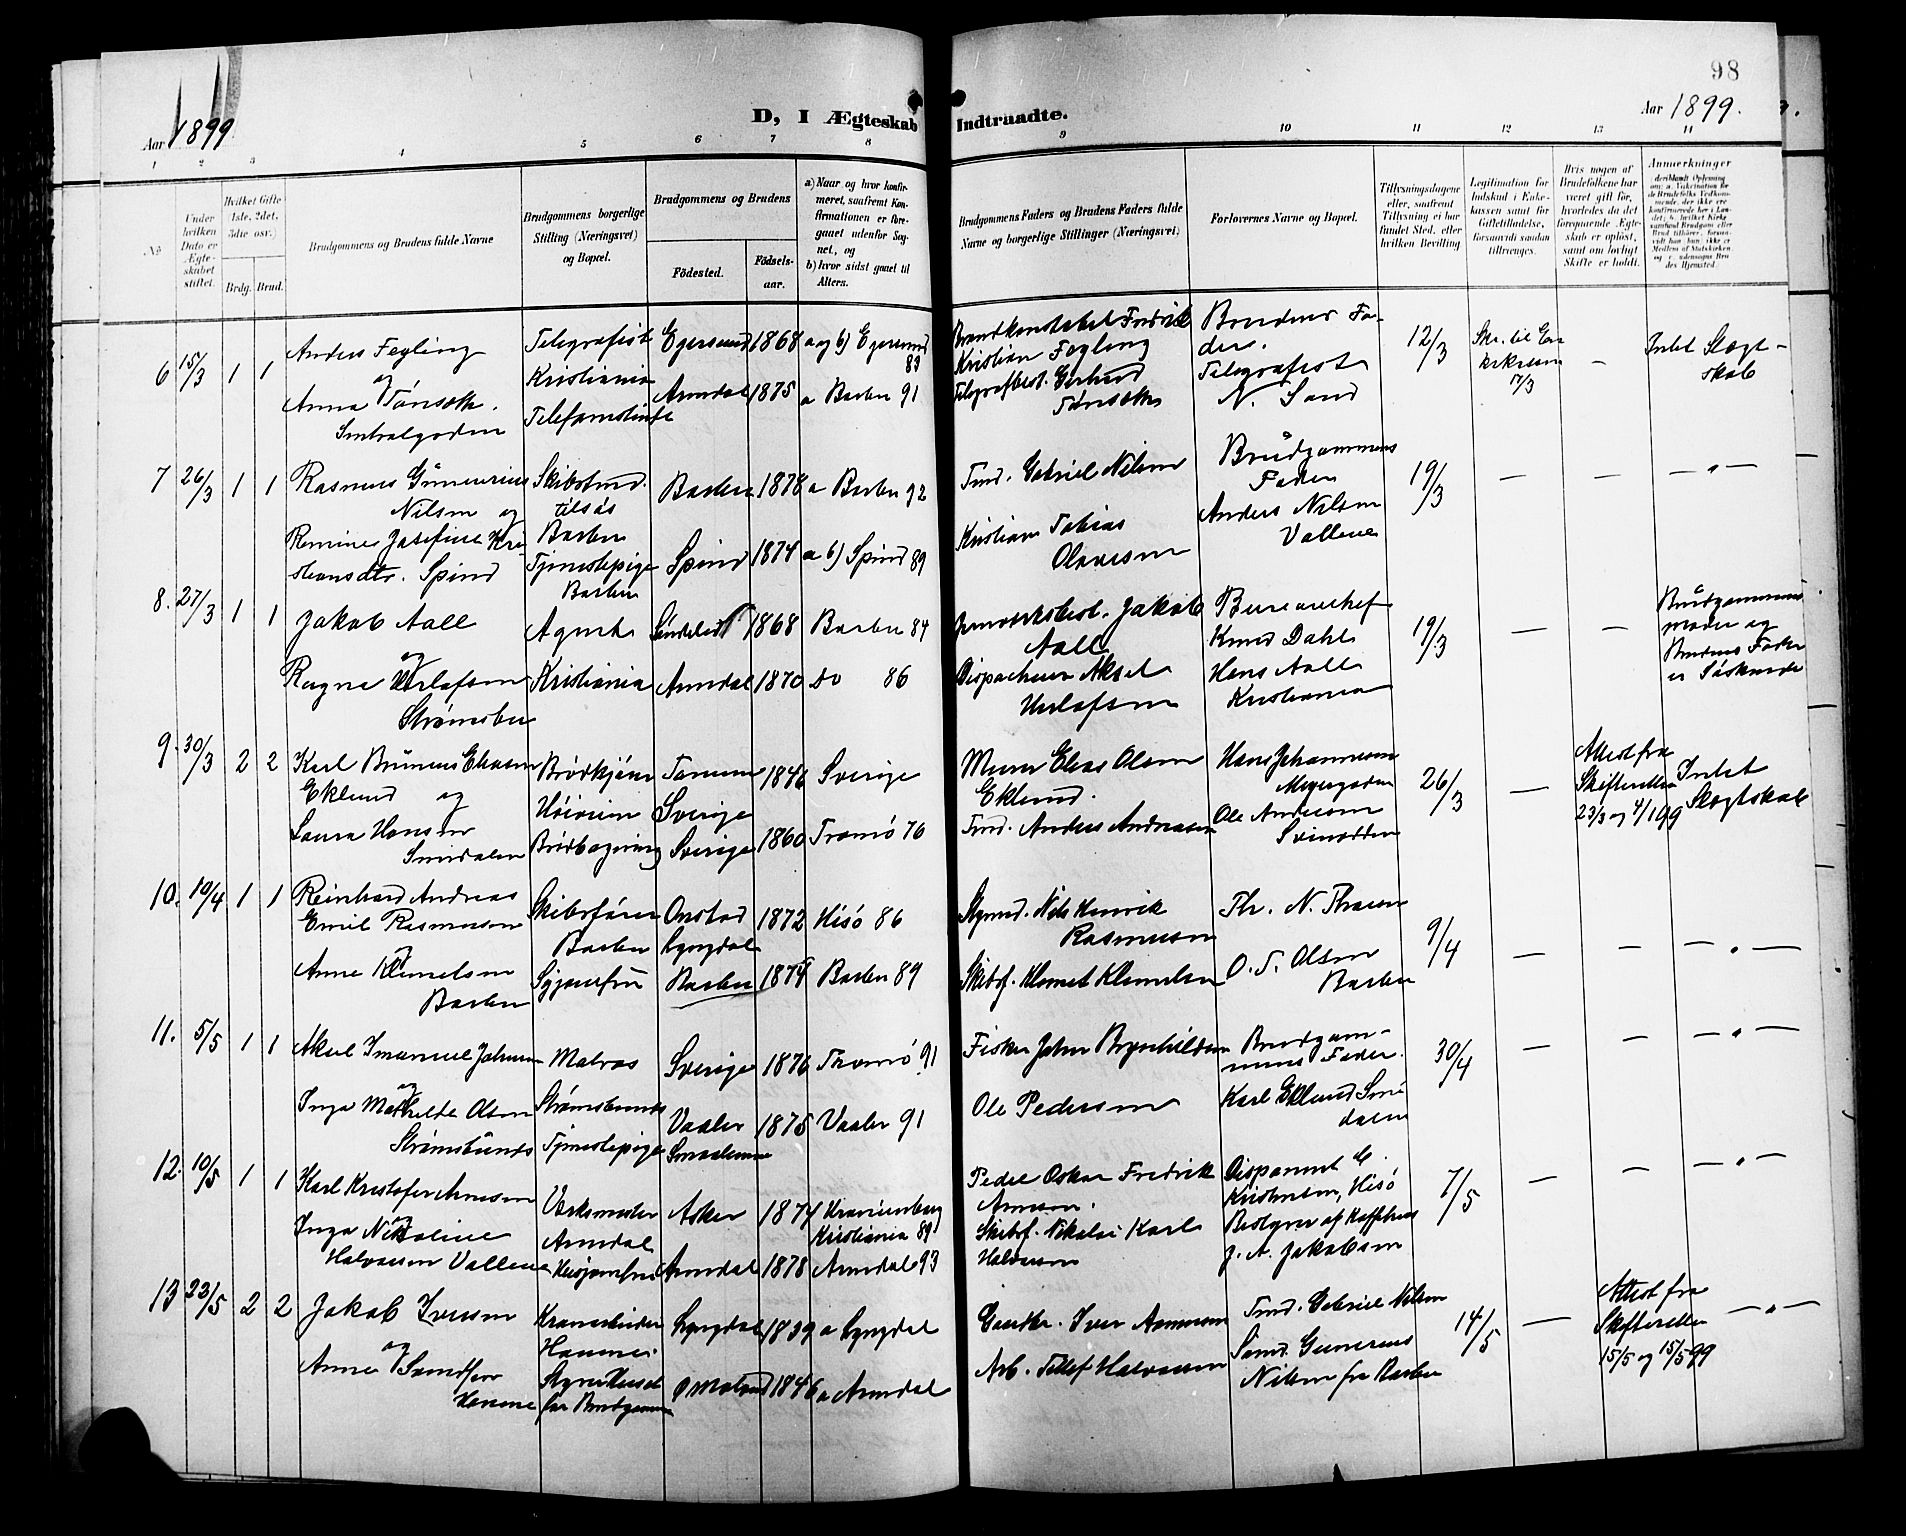 98
Aar 1899.
D, I Ægteskab Indtraadte.
Aar 1899.
1 2 3 4 5 6 7 8 9 10 11 12 13 14
No
Under hvilken Dato er Ægteskabet stiftet.
Hvilket Gifte (1ste, 2det, 3die osv.)
Brdg. Brud.
Brudgommens og Brudens fulde Navne
Brudgommens borgerlige Stilling (Næringsvei) og Bopæl.
Brudgommens og Brudens
Födested.
Födselsaar.
a) Naar og hvor konfirmeret, saafremt Konfirmationen er foregaaet udenfor Sognet, og
b) hvor sidst gaaet til Alters.
Brudgommens Faders og Brudens Faders fulde Navne og borgerlige Stillinger (Næringsvei)
Forlovernes Navne og Bopæl.
Tillysningsdagene eller, saafremt Tillysning ei har fundet Sted, efter hvilken Bevilling
Legitimation for Indskud i Enkekassen samt for Giftetilladelse, forsaavidt saadan tiltrænges.
Hvis nogen af Brudefolkene har været gift för, hvorledes da det foregaaende Ægteskab er oplöst, samt om lovligt Skifte er holdt.
Anmerkninger
6 15/3 1 1
Anders Fegling
og
Anna Tønseth.
Sentralgaden
Telegrafist
Kristiania
Telefonistinde
Egersund 1868 a og b) Egersund 83
Arendal 1875 a Barbu 91
Brandkonstabel Fredrik
Kristian Fegling
Telegrafbest. Gerhard
Tønseth
Brudens Fader.
Telegrafist
N. Sand
12/3
Skr. til Enkekassen
17/3
—
Intet Slægtskab
7 26/3 1 1
Rasmus Gunerius
Nilsen og
Remine Josefine Kristiansdtr. Spind
Skibstmd.
tilsøs
Barbu
Tjenestepige
Barbu
Barbu 1878 a Barbu 92
Spind 1874 a b) Spind 89
Tmd. Gabriel Nilsen
Kristian Tobias
Olavesen
Brudgommens
Fader
Anders Nilsen
Vallene
19/3
— — — " —
8. 27/3 1 1
Jakob Aall
og
Ragna Herlofsen
Strømsbu
Agent
Kristiania
Søndeled 1868 Barbu 84
Arendal 1870 do 86
Jernverksbest. Jakob
Aall
Dispacheur Aksel
Herlofsen
Bureauchef
Knud Dahl
Hans Aall
Kristiania
19/3
— —
Brudgommens
Moder og
Brudens Fader
er Søskende
9. 30/3 2 2
Karl Brunius Eliasen
Eklund og
Laura Hansen
Smidalen
Brødkjører
Brødbagning
Tanum
Sverige
1846 Sverige
Sverige 1860 Tromø 76
Murer Elias Olsen
Eklund.
Tmd. Anders Andreasen
Hans Johannesen
Meyergaden
Ole Andersen
Svinodden
26/3
—
Attest fra
Skifteretten
23/3 og 4/1 99
Intet
Slægtskab
10. 10/4 1 1
Reinhard Andreas
Emil Rasmussen
og
Anne Klemetsen
Barbu
Skibsfører
Barbu
Syjomfru
Onstad
Lyngdal
1872 Hisø 86
Barbu 1874 Barbu 89
Styrmd. Nils Henrik
Rasmussen
Skibsf. Klemet Klemetsen
Th. N. Thraesen
O. T. Olsen
Barbu
9/4
— — — " —
11. 5/5 1 1
Aksel Imanuel Johnsen
og
Inga Mathilde Olsen
Strømsbunds
Matros
Strømsbunds
Tjenestepige
Sverige 1876 Tromø 91
Vaaler
Smaalenene
1875 Vaaler 91
Fisker John Brynhildsen
Ole Pedersen
Brudgommens Fader.
Karl Eklund Smidalen
30/4
— — — " —
12. 10/5 1 1
Karl Kristofer Arnesen
og
Inga Nikoline
Halvorsen Vallene
Verksmester
Arendal
Husjomfru
Asker 1874
Kristiania 89
Arendal 1878 Arendal 93
Peder Oskar Fredrik
Arnesen.
Skibsf. Nikolai Karl
Halvorsen
Disponent C.
Kristensen, Hisø
Bestyrer af Kaffehus
J. A. Jakobsen
7/5
— — — " —
13 23/5 2 2
Jakob Iversen
og
Anna Sandfær
Havene
Kranarbeider
Havene.
Styrer Huset
for Brudgommen
Lyngdal 1839 a Lyngdal
Ø Moland 1846 a Arendal
Gaardbr. Iver Aanensen
Arb. Tellef Halvorsen
Tmd. Gabriel Nilsen
Sømd. Gunerius
Nilsen fra Barbu
14/5
—
Attest fra
Skifteretten
15/5 og 15/5 99
— " —